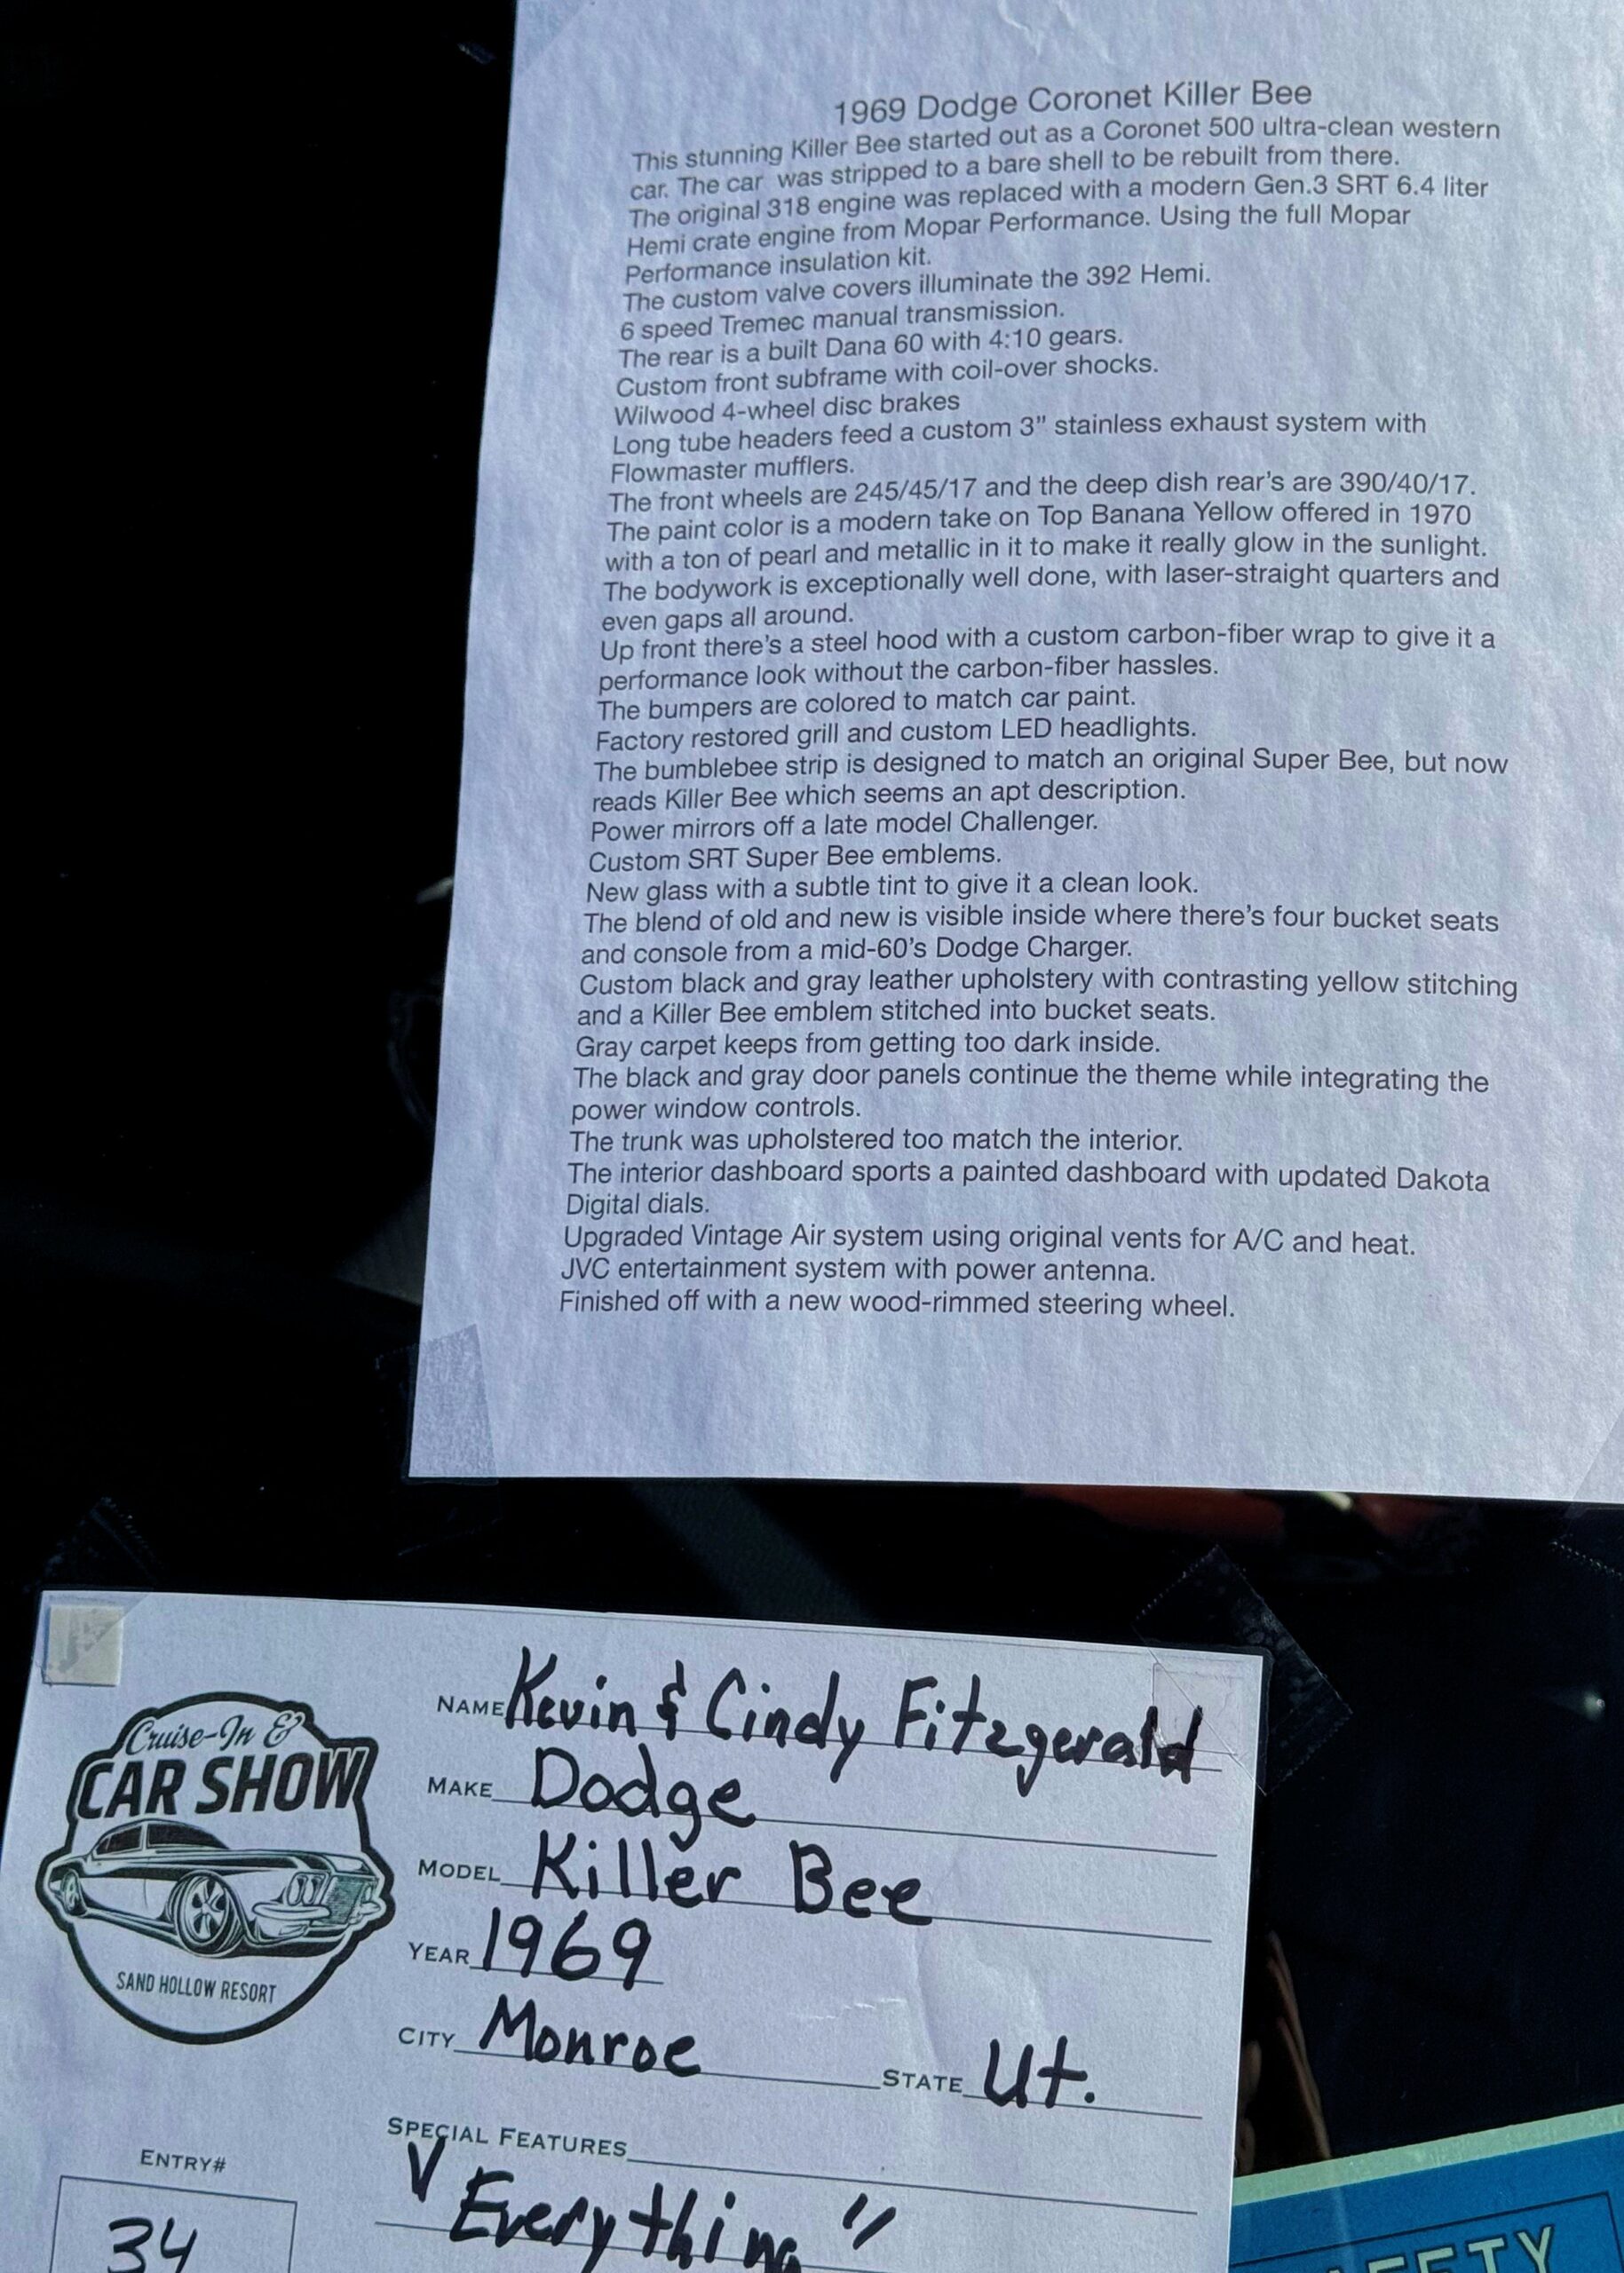 1969 Dodge Coronet Killer Bee
This stunning Killer Bee started out as a Coronet 500 ultra-clean western
car. The car was stripped to a bare shell to be rebuilt from there.
The original 318 engine was replaced with a modern Gen.3 SRT 6.4 liter
Hemi crate engine from Mopar Performance. Using the full Mopar
Performance insulation kit.
The custom valve covers illuminate the 392 Hemi.
6 speed Tremec manual transmission.
The rear is a built Dana 60 with 4:10 gears.
Custom front subframe with coil-over shocks.
Wilwood 4-wheel disc brakes
Long tube headers feed a custom 3" stainless exhaust system with
Flowmaster mufflers.
The front wheels are 245/45/17 and the deep dish rear's are 390/40/17.
The paint color is a modern take on Top Banana Yellow offered in 1970
with a ton of pearl and metallic in it to make it really glow in the sunlight.
The bodywork is exceptionally well done, with laser-straight quarters and
even gaps all around.
Up front there's a steel hood with a custom carbon-fiber wrap to give it a
performance look without the carbon-fiber hassles.
The bumpers are colored to match car paint.
Factory restored grill and custom LED headlights.
The bumblebee strip is designed to match an original Super Bee, but now
reads Killer Bee which seems an apt description.
Power mirrors off a late model Challenger.
Custom SRT Super Bee emblems.
New glass with a subtle tint to give it a clean look.
The blend of old and new is visible inside where there's four bucket seats
and console from a mid-60's Dodge Charger.
Custom black and gray leather upholstery with contrasting yellow stitching
and a Killer Bee emblem stitched into bucket seats.
Gray carpet keeps from getting too dark inside.
The black and gray door panels continue the theme while integrating the
power window controls.
The trunk was upholstered too match the interior.
The interior dashboard sports a painted dashboard with updated Dakota
Digital dials.
Upgraded Vintage Air system using original vents for A/C and heat.
JVC entertainment system with power antenna.
Finished off with a new wood-rimmed steering wheel.
Cruise-In &
CAR SHOW
SAND HOLLOW RESORT
NAME Kevin & Cindy Fitzgerald
MAKE Dodge
MODEL Killer Bee
YEAR 1969
CITY Monroe STATE Ut.
SPECIAL FEATURES
"Everything"
ENTRY#
34